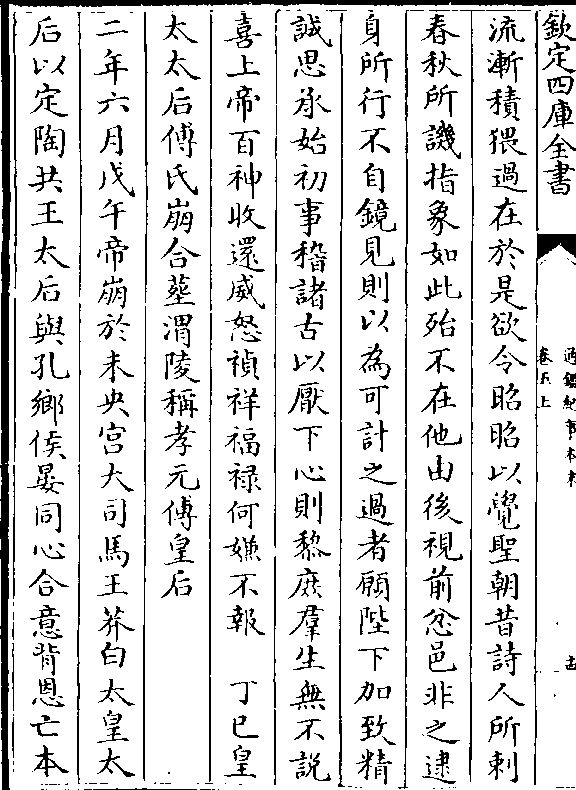 欽定四庫全書
通鑑紀事本末
卷五上
流漸積猥過在於是欲令昭昭以覺聖朝昔詩人所刺
春秋所譏指象如此殆不在他由後視前忿邑非之逮
身所行不自鏡見則以為可計之過者願陛下加致精
誠思承始初事稽諸古以厭下心則黎庶羣生無不說
喜上帝百神收還威怒禎祥福禄何嫌不報　丁巳皇
太太后傅氏崩合塟渭陵稱孝元傅皇后
二年六月戊午帝崩於未央宫大司馬王莽白太皇太
后以定陶共王太后與孔鄉侯晏同心合意背恩亡本